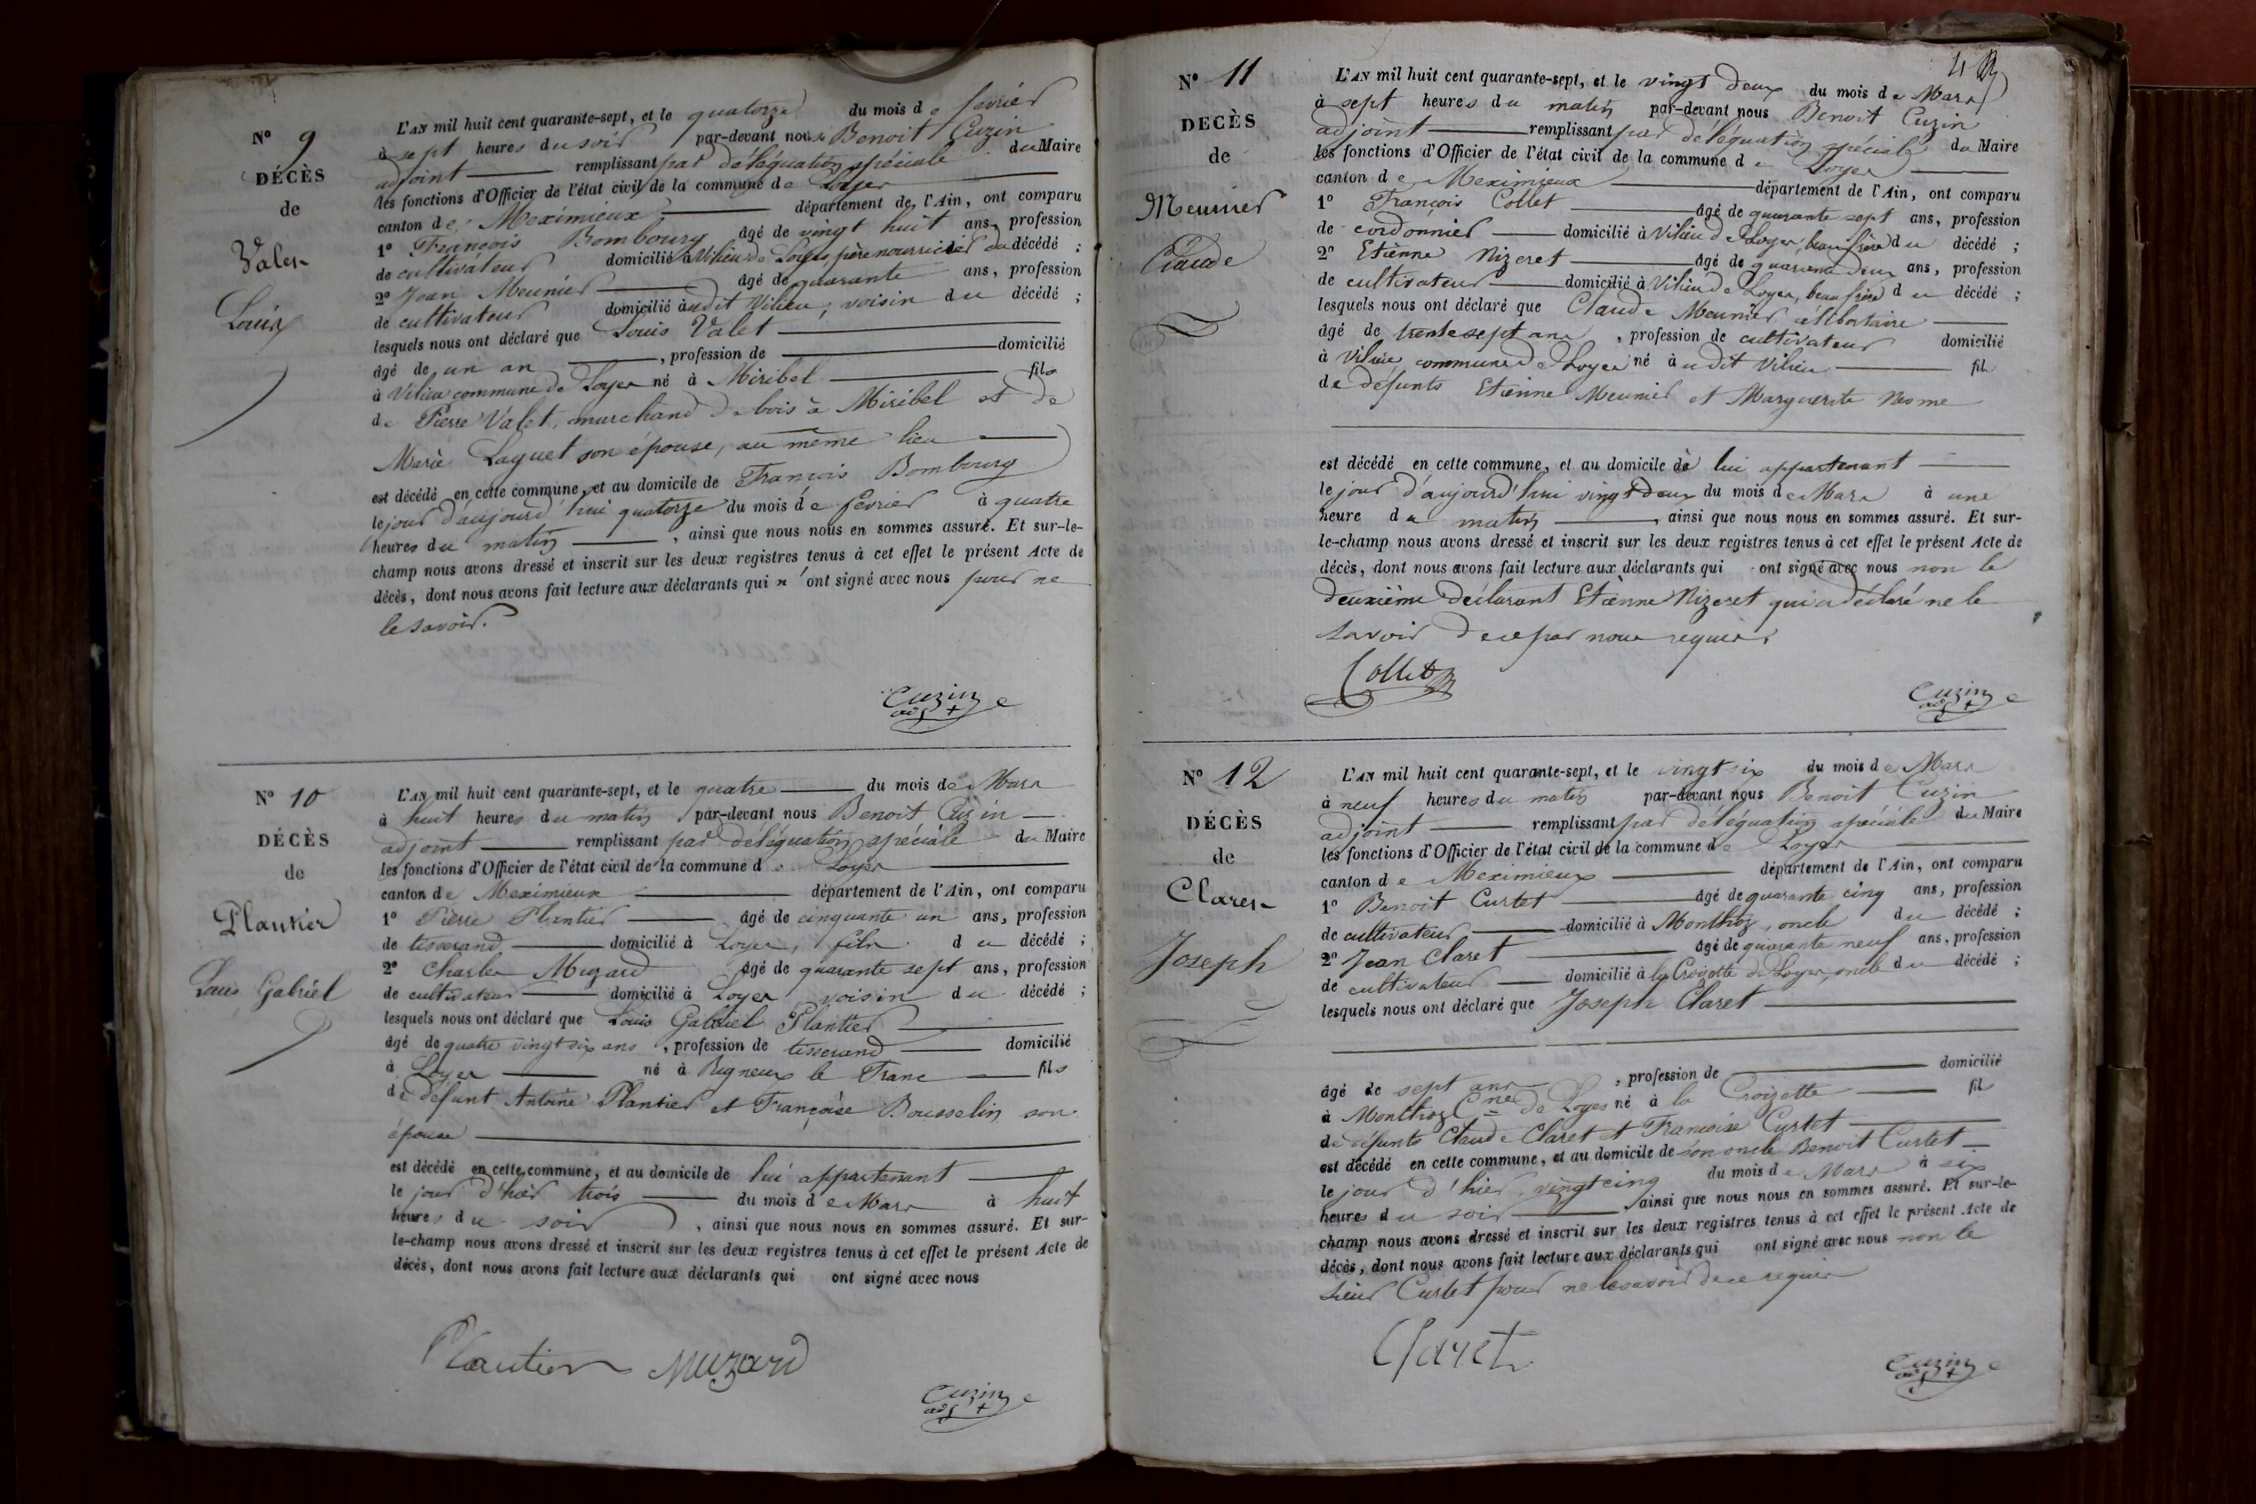 N° 9
DÉCÈS
de
Valet
Louis
L'AN mil huit cent quarante-sept, et le quatorze du mois de février
à sept heures du soir par-devant nous Benoit Cuzin
adjoint remplissant par déléguation spéciale du Maire
les fonctions d'Officier de l'état civil de la commune de Loyes
canton de Meximieux département de l'Ain, ont comparu
1° François Bombourg âgé de vingt huit ans, profession
de cultivateur domicilié à Vilieu de Loyes, père nourricier du décédé ;
2° Jean Meunier âgé de quarante ans, profession
de cultivateur domicilié audit Vilieu, voisin du décédé ;
lesquels nous ont déclaré que Louis Valet
âgé de un an , profession de domicilié
à Vilieu commune de Loyes né à Miribel fils
de Pierre Valet, marchand de bois à Miribel et de
Marie Laquet son épouse, au même lieu
est décédé en cette commune, et au domicile de François Bombourg
le jour d'aujourd'hui quatorze du mois de février à quatre
heures du matin , ainsi que nous nous en sommes assuré. Et sur-le-
champ nous avons dressé et inscrit sur les deux registres tenus à cet effet le présent Acte de
décès, dont nous avons fait lecture aux déclarants qui n'ont signé avec nous pour ne
le savoir.
Cuzin
adjt
N° 10
DÉCÈS
de
Plantier
Louis Gabriel
L'AN mil huit cent quarante-sept, et le quatre du mois de Mars
à huit heures du matin par-devant nous Benoit Cuzin
adjoint remplissant par déléguation spéciale du Maire
les fonctions d'Officier de l'état civil de la commune de Loyes
canton de Meximieux département de l'Ain, ont comparu
1° Pierre Plantier âgé de cinquante un ans, profession
de tisserand domicilié à Loyes, fils du décédé ;
2° Charles Muzard âgé de quarante sept ans, profession
de cultivateur domicilié à Loyes voisin du décédé ;
lesquels nous ont déclaré que Louis Gabriel Plantier
âgé de quatre vingt six ans , profession de tisserand domicilié
à Loyes né à Rigneux le Franc fils
de défunt Antoine Plantier et Françoise Bousselin son
épouse
est décédé en cette commune, et au domicile de lui appartenant
le jour d'hier trois du mois de Mars à huit
heures du soir , ainsi que nous nous en sommes assuré. Et sur-
le-champ nous avons dressé et inscrit sur les deux registres tenus à cet effet le présent Acte de
décès, dont nous avons fait lecture aux déclarants qui ont signé avec nous
Plantier Muzard
Cuzin
adjt
4
N° 11
DECÈS
de
Meunier
Claude
L'AN mil huit cent quarante-sept, et le vingt deux du mois de Mars
à sept heures du matin par-devant nous Benoit Cuzin
adjoint remplissant par déléguation spéciale du Maire
les fonctions d'Officier de l'état civil de la commune de Loyes
canton de Meximieux département de l'Ain, ont comparu
1° François Collet âgé de quarante sept ans, profession
de cordonnier domicilié à Vilieu de Loyes, beau frère du décédé ;
2° Etienne Nizeret âgé de quarante deux ans, profession
de cultivateur domicilié à Vilieu de Loyes, beau frère du décédé ;
lesquels nous ont déclaré que Claude Meunier célibataire
âgé de trente sept ans , profession de cultivateur domicilié
à Vilieu commune de Loyes né audit Vilieu fils
de défunts Etienne Meunier et Marguerite Neome
est décédé en cette commune, et au domicile de lui appartenant
le jour d'aujourd'hui vingt deux du mois de Mars à une
heure du matin , ainsi que nous nous en sommes assuré. Et sur-
le-champ nous avons dressé et inscrit sur les deux registres tenus à cet effet le présent Acte de
décès, dont nous avons fait lecture aux déclarants qui ont signé avec nous non le
deuxième déclarant Etienne Nizeret qui a déclaré ne le
savoir de ce par nous requis.
Collet
Cuzin
adjt
N° 12
DÉCÈS
de
Claret
Joseph
L'AN mil huit cent quarante-sept, et le vingt six du mois de Mars
à neuf heures du matin par-devant nous Benoit Cuzin
adjoint remplissant par déléguation spéciale du Maire
les fonctions d'Officier de l'état civil de la commune de Loyes
canton de Meximieux département de l'Ain, ont comparu
1° Benoit Curtet âgé de quarante cinq ans, profession
de cultivateur domicilié à Monthoz, oncle du décédé ;
2° Jean Claret âgé de quarante neuf ans, profession
de cultivateur domicilié à la Croizette de Loyes, oncle du décédé ;
lesquels nous ont déclaré que Joseph Claret
âgé de sept ans , profession de domicilié
à Monthoz Cne de Loyes né à la Croizette fils
de défunts Claude Claret et Françoise Curtet
est décédé en cette commune, et au domicile de son oncle Benoit Curtet
le jour d'hier vingt cinq du mois de Mars à six
heures du soir , ainsi que nous nous en sommes assuré. Et sur-le-
champ nous avons dressé et inscrit sur les deux registres tenus à cet effet le présent Acte de
décès, dont nous avons fait lecture aux déclarants qui ont signé avec nous non le
sieur Curtet pour ne le savoir de ce requis
Claret
Cuzin
adjt